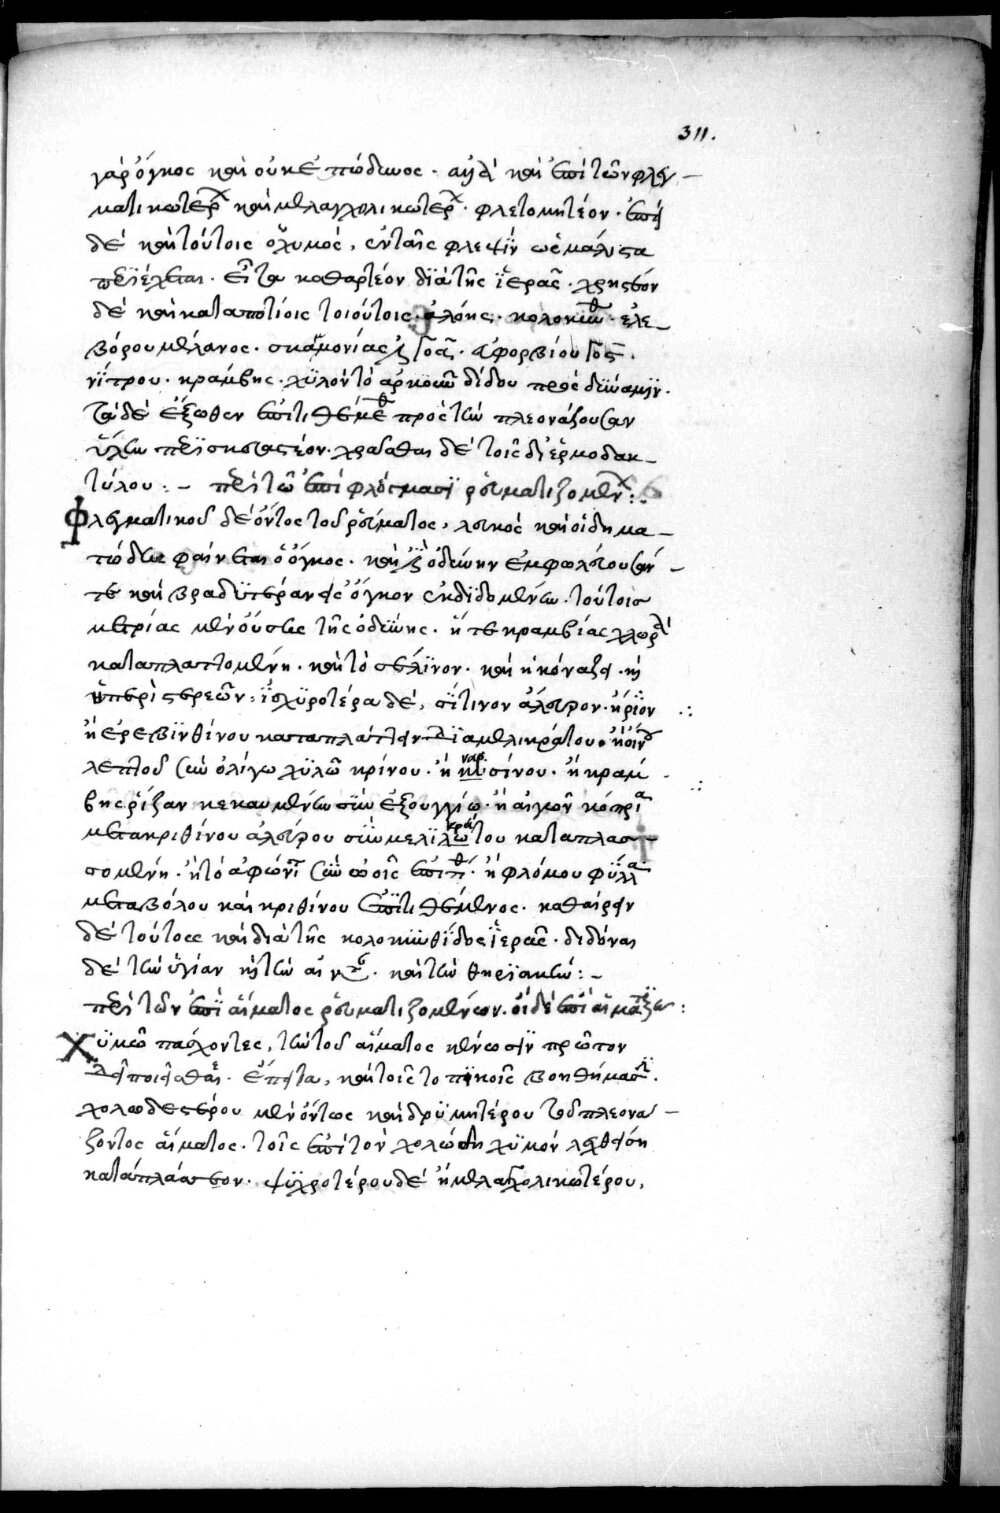 311.
γὰρ ὄγκος καὶ οὐκ ἐπώδυνος · ἀλλὰ καὶ ἐπὶ τῶν φλεγ-
ματικωτέρ καὶ μελαγχολικωτέρ · φλεβοτομητέον · ἐπεὶ
δὲ καὶ τούτοις ὁ χυμός, ἐν ταῖς φλεψὶν ὡς μάλιστα
περιέχεται. εἶτα καθαρτέον διὰ τῆς ἱερᾶς · χρηστέον
δὲ καὶ καταποτίοις τοιούτοις · ἀλόης · κολοκυνθ · ἐλε-
βόρου μέλανος · σκαμονίας · εὐφορβίου
νίτρου · κράμβης · χυλὸν τὸ ἀρκοῦν δίδου πρὸς δύναμιν.
τὰ δὲ ἔξωθεν ἐπιτιθέμεθ πρὸς τὴν πλεονάζουσαν
ὕλην περισκεπτέον · χρᾶσθαι δὲ τοῖς δι' ἑρμοδακ-
τύλου :- περὶ τῶν ἐπὶ φλέγμασι ῥευματιζομένων :
Φλεγματικοῦ δὲ ὄντος τοῦ ῥεύματος, λευκὸς καὶ οἰδημα-
τώδης φαίνεται ὁ ὄγκος · καὶ ὀδύνην ἐμφωλεύουσάν -
τε καὶ βραδυτέραν εἰς ὄγκον ἐκδιδομένην · τούτοις
μετρίας μὲν οὔσης τῆς ὀδύνης · ἥ τε κραμβίας χλωρὰ
καταπλαττομένη · καὶ τὸ σέλινον · καὶ ἡ κόναξα · ἡ
περιστερεῶν · ἰσχυροτέρα δέ, σίτινον ἄλευρον · ἢ ἔριον
ἢ ἐρεβινθίνου καταπλάττειν διὰ μελικράτου · ἢ οἴν
λεπτοῦ σὺν ὀλίγῳ χυλῷ κρίνου · ἢ σίνου · ἢ κράμ
βης ῥίζαν κεκαυμένην σὺν ἐξουγγίῳ · ἢ αἰγῶν κόπρια
μετὰ κριθίνου ἀλεύρου σὺν μελικράτου καταπλασ
σομένη · ἢ τὸ ἀφώνι σὺν ὠοῖς · ἢ φλόμου φύλλα
μεταβόλου καὶ κριθίνου ἐπιτιθέμενος · καθαίρειν
δὲ τούτους καὶ διὰ τῆς κολοκυνθίδος ἱερᾶς · διδόναι
δὲ τὴν ὑγίαν · καὶ τὴν θηριακήν :-
περὶ τῶν ἐπὶ αἵματος ῥευματιζομένων. οἱ δὲ ἐπὶ αἵματι :
Χυμῷ πάσχοντες, τὴν τοῦ αἵματος κένωσιν πρῶτον
δεῖ ποιεῖσθαι · ἔπειτα, καὶ τοῖς τοπικοῖς βοηθήμασι.
χολωδεστέρου μὲν ὄντως καὶ δριμυτέρου τοῦ πλεονά-
ζοντος αἵματος · τοῖς ἐπὶ τὸν χολώδη χυμὸν λεχθεῖσι
κατάπλασσον · ψυχροτέρου δὲ ἢ μελαγχολικωτέρου,